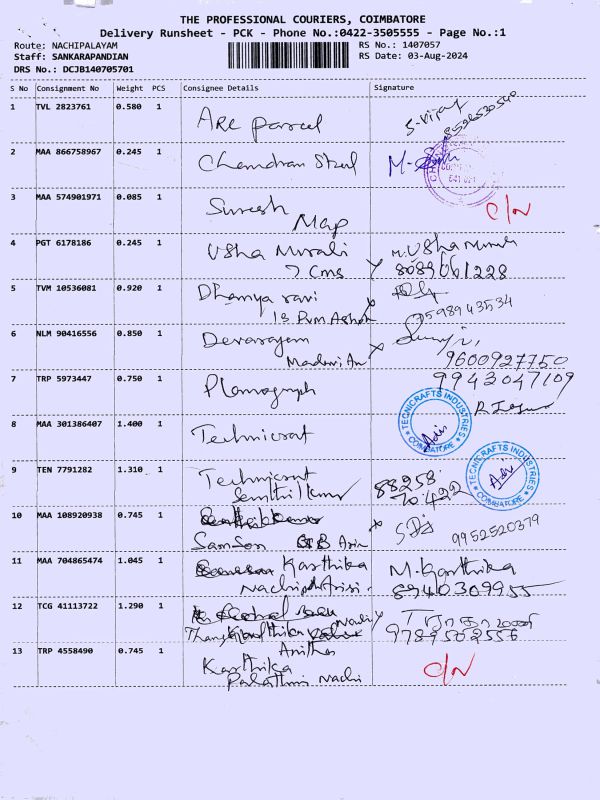 THE PROFESSIONAL COURIERS, COIMBATORE
Delivery Runsheet - PCK - Phone No.:0422-3505555 - Page No.:1
Route: NACHIPALAYAM
RS No.: 1407057
Staff: SANKARAPANDIAN
RS Date: 03-Aug-2024
DRS No.: DCJB140705701
S No Consignment No Weight PCS Consignee Details Signature
1 TVL 2823761 0.580 1 Are parcel S-vijay
2 MAA 866758967 0.245 1 Chandran Steel M-
3 MAA 574901971 0.085 1 Suresh
Map C/N
4 PGT 6178186 0.245 1 Usha Murali M. Usha Murali
7 Cms 8089061228
5 TVM 10536081 0.920 1 Dhanya ravi
13 Pvm Ashok 7598943534
6 NLM 90416556 0.850 1 Devarayam
9600927750
7 TRP 5973447 0.750 1 Planograph 9943047109
8 MAA 301386407 1.400 1 Technicrat
TECNICRAFTS INDUSTRIES
COIMBATORE
9 TEN 7791282 1.310 1 Technicrat 88258
Senthil Kumar 70422
TECNICRAFTS INDUSTRIES
COIMBATORE
10 MAA 108920938 0.745 1
Samson 9952520379
11 MAA 704865474 1.045 1 Karthika M. Karthika
8940309955
12 TCG 41113722 1.290 1
9789502556
13 TRP 4558490 0.745 1 Anitha
Karthika C/N
Palathuri Nachi